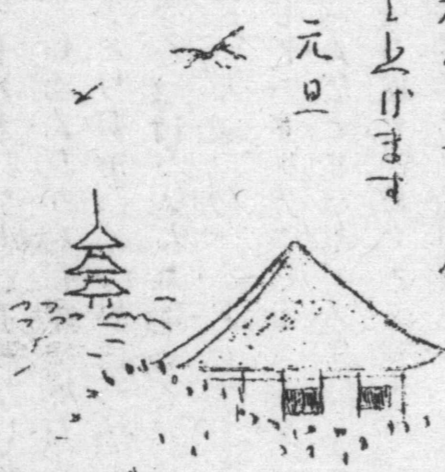 し上げます
元旦